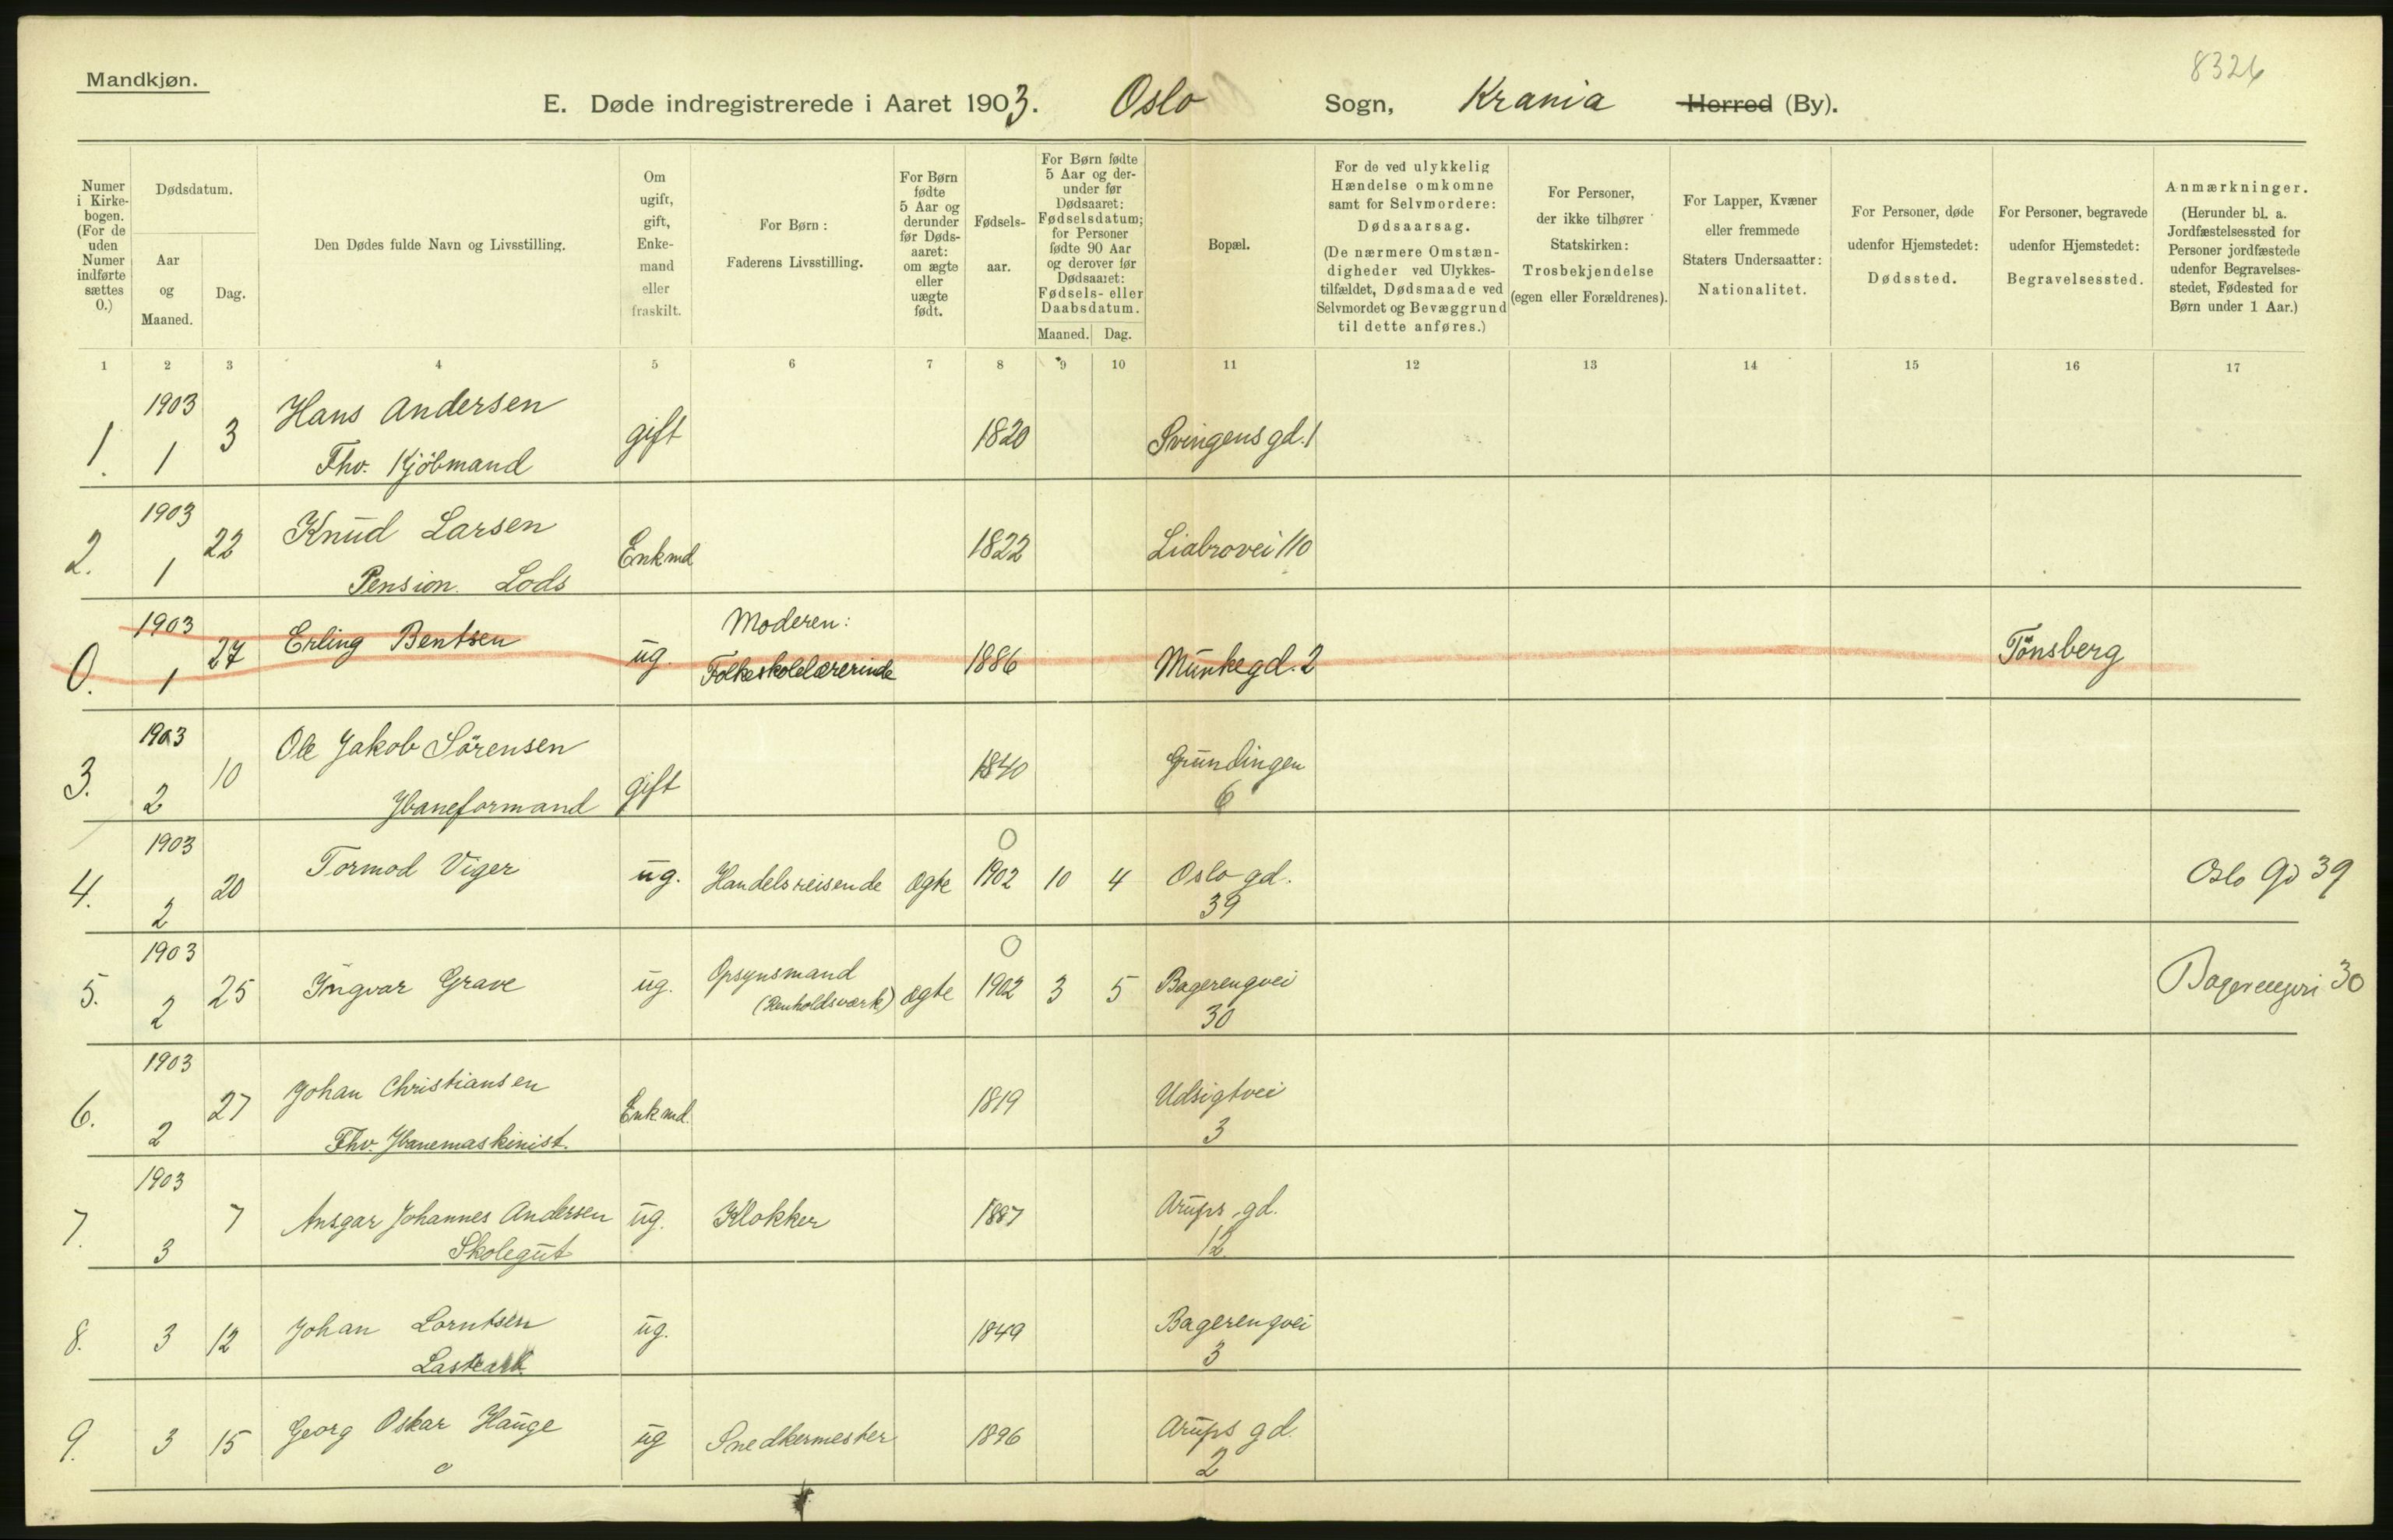 8326
Mandkjøn.
E. Døde indregistrerede i Aaret 1903. Oslo Sogn, Krania Herred (By).
Numer i Kirkebogen. (For de uden Numer indførte sættes 0.)
Dødsdatum.
Aar og Maaned.
Dag.
Den Dødes fulde Navn og Livsstilling.
Om ugift, gift, Enkemand eller fraskilt.
For Børn: Faderens Livsstilling.
For Børn fødte 5 Aar og derunder før Dødsaaret: om ægte eller uægte født.
Fødselsaar.
For Børn fødte 5 Aar og derunder før Dødsaaret: Fødselsdatum; for Personer fødte 90 Aar og derover før Dødsaaret: Fødsels- eller Daabsdatum.
Maaned. Dag.
Bopæl.
For de ved ulykkelig Hændelse omkomne samt for Selvmordere: Dødsaarsag. (De nærmere Omstændigheder ved Ulykkestilfældet, Dødsmaade ved Selvmordet og Bevæggrund til dette anføres.)
For Personer, der ikke tilhører Statskirken: Trosbekjendelse (egen eller Forældrenes).
For Lapper, Kvæner eller fremmede Staters Undersaatter: Nationalitet.
For Personer, døde udenfor Hjemstedet: Dødssted.
For Personer, begravede udenfor Hjemstedet: Begravelsessted.
Anmærkninger. (Herunder bl. a. Jordfæstelsessted for Personer jordfæstede udenfor Begravelsesstedet, Fødested for Børn under 1 Aar.)
1 2 3 4 5 6 7 8 9 10 11 12 13 14 15 16 17
1. 1903 1 3 Hans Andersen gift 1820 Svingens gd. 1
Fhv. Kjöbmand
2. 1903 1 22 Knud Larsen Enkmd 1822 Liabrovei 110
Pension. Lods
0. 1903 1 27 Erling Bentsen ug. Moderen: Folkeskolelærerinde 1886 Munkegd. 2 Tönsberg
3. 1903 2 10 Ole Jakob Sörensen gift 1840 Grundingen 6
Jbaneformand
4. 1903 2 20 Tormod Viger ug. Handelsreisende ægte 0 1902 10 4 Oslo gd. 39 Oslo Gd 39
5. 1903 2 25 Ingvar Grave ug. Opsynsmand (Renholdsværk) ægte 0 1902 3 5 Bagerengvei 30 Bagerengvei 30
6. 1903 2 27 Johan Christiansen Enkmd. 1819 Udsigtvei 3
Fhv. Jbanemaskinist.
7. 1903 3 7 Ansgar Johannes Andersen ug. Klokker 1887 Arups gd. 12
Skolegut
8. 3 12 Johan Lorntsen ug. 1849 Bagerengvei 3
9. 3 15 Georg Oskar Hauge ug Snedkermester 1896 Arups gd. 2